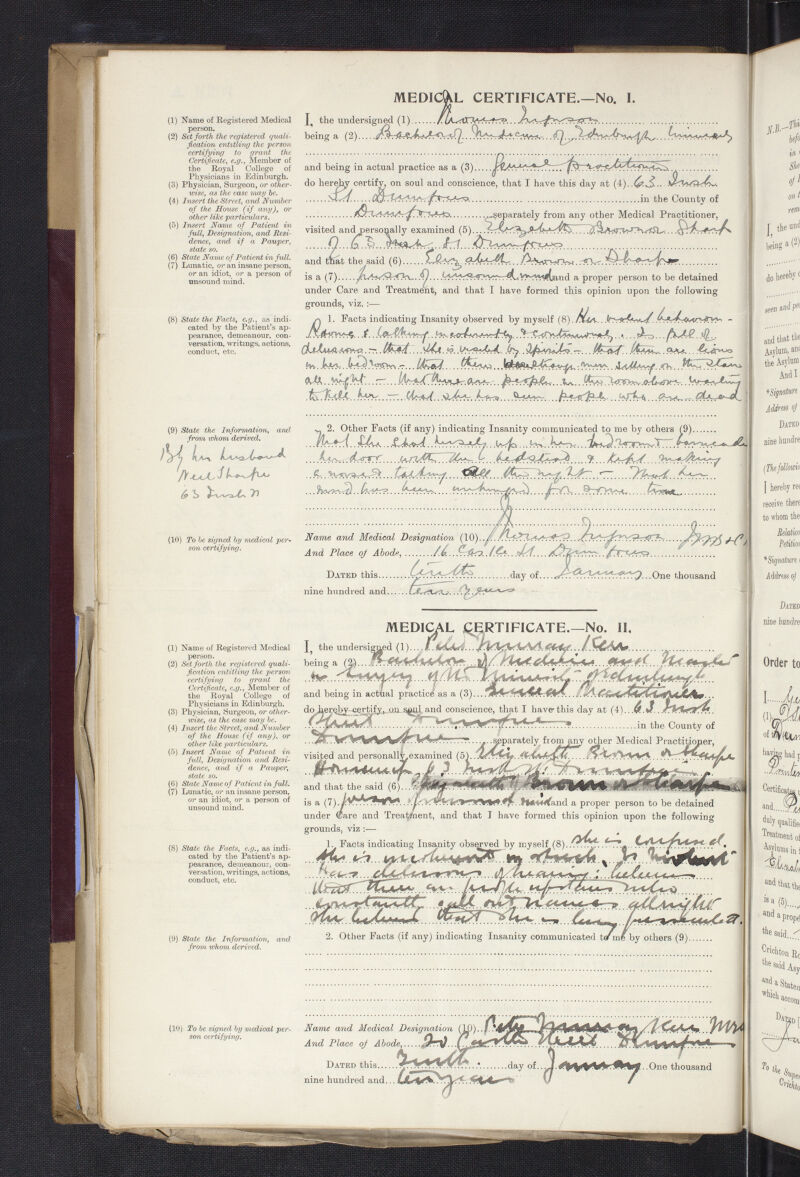 MEDICAL CERTIFICATE.—No. I.
(1) Name of Registered Medical
person.
(2) Set forth the registered quali-
fication entitling the person
certifying to grant the
Certificate, e.g., Member of
the Royal College of
Physicians in Edinburgh.
(3) Physician, Surgeon, or other-
wise, as the case may be.
(4) Insert the Street, and Number
of the House (if any), or
other like particulars.
(5) Insert Name of Patient in
full, Designation, and Resi-
dence, and if a Pauper,
state so.
(6) State Name of Patient in full.
(7) Lunatic, or an insane person,
or an idiot, or a person of
unsound mind.
I, the undersigned (1) Thomas
being a (2) Bachelor of Medicine of Edinburgh University
and being in actual practice as a (3) General Practitioner
do hereby certify, on soul and conscience, that I have this day at (4) 63 Irish
St Dumfries in the County of
Dumfries separately from any other Medical Practitioner,
visited and personally examined (5) Elizabeth Brown or Sharpe
of 63 Irish St Dumfries
and that the said (6) Elizabeth Brown or Sharpe
is a (7) person of unsound mind and a proper person to be detained
under Care and Treatment, and that I have formed this opinion upon the following
grounds, viz. :—
(8) State the Facts, e.g., as indi-
cated by the Patient's ap-
pearance, demeanour, con-
versation, writings, actions,
conduct, etc.
1. Facts indicating Insanity observed by myself (8) Her violent behaviour -
Raving & talking incoherently & continuously. Is full of
delusions - that she is visited by spirits - that there are lions
in her bedroom - that there strange men sitting on the stairs
all night - that there are people in the room above wanting
to kill her - that she has seen people who are dead
(9) State the Information, and
from whom derived.
By her husband
Neil Sharpe
63 Irish St
2. Other Facts (if any) indicating Insanity communicated to me by others (9)
That she shut herself up in her bedroom & barricaded
her door with the bedstead & kept making
a noise & talking all the night - That her
mind has been unhinged for some time
(10) To be signed by medical per-
son certifying.
Name and Medical Designation (10) Thomas
And Place of Abode, 16 Castle St Dumfries
DATED this tenth day of January One thousand
nine hundred and ten years
MEDICAL CERTIFICATE.—No. II.
(1) Name of Registered Medical
person.
(2) Set forth the registered quali-
fication entitling the person
certifying to grant the
Certificate, e.g., Member of
the Royal College of
Physicians in Edinburgh.
(3) Physician, Surgeon, or other-
wise, as the case may be.
(4) Insert the Street, and Number
of the House (if any), or
other like particulars.
(5) Insert Name of Patient in
full, Designation, and Resi-
dence, and if a Pauper,
state so.
(6) State Name of Patient in full.
(7) Lunatic, or an insane person,
or an idiot, or a person of
unsound mind.
I, the undersigned (1) Peter Murray Kerr
being a (2) Bachelor of Medicine and Master
in Surgery of the University of Edinburgh
and being in actual practice as a (3) General Practitioner
do hereby certify, on soul and conscience, that I have this day at (4) 63 Irish
Street Dumfries in the County of
Dumfries separately from any other Medical Practitioner,
visited and personally examined (5) Elizabeth Brown or Sharpe
Housewife 63 Irish St Dumfries
and that the said (6) Elizabeth Brown or Sharpe
is a (7) person of unsound mind and a proper person to be detained
under Care and Treatment, and that I have formed this opinion upon the following
grounds, viz :—
(8) State the Facts, e.g., as indi-
cated by the Patient's ap-
pearance, demeanour, con-
versation, writings, actions,
conduct, etc.
1. Facts indicating Insanity observed by myself (8) She is confused.
She is incoherent in speech. Is violent
has delusions of hearing: believes
that there are people upstairs who
constantly call out names all night
She believes that she is being persecuted.
(9) State the Information, and
from whom derived.
2. Other Facts (if any) indicating Insanity communicated to me by others (9)
(10) To be signed by medical per-
son certifying.
Name and Medical Designation (10) Peter Murray Kerr
And Place of Abode, 20 Castle Street Dumfries
DATED this Tenth day of January One thousand
nine hundred and ten years